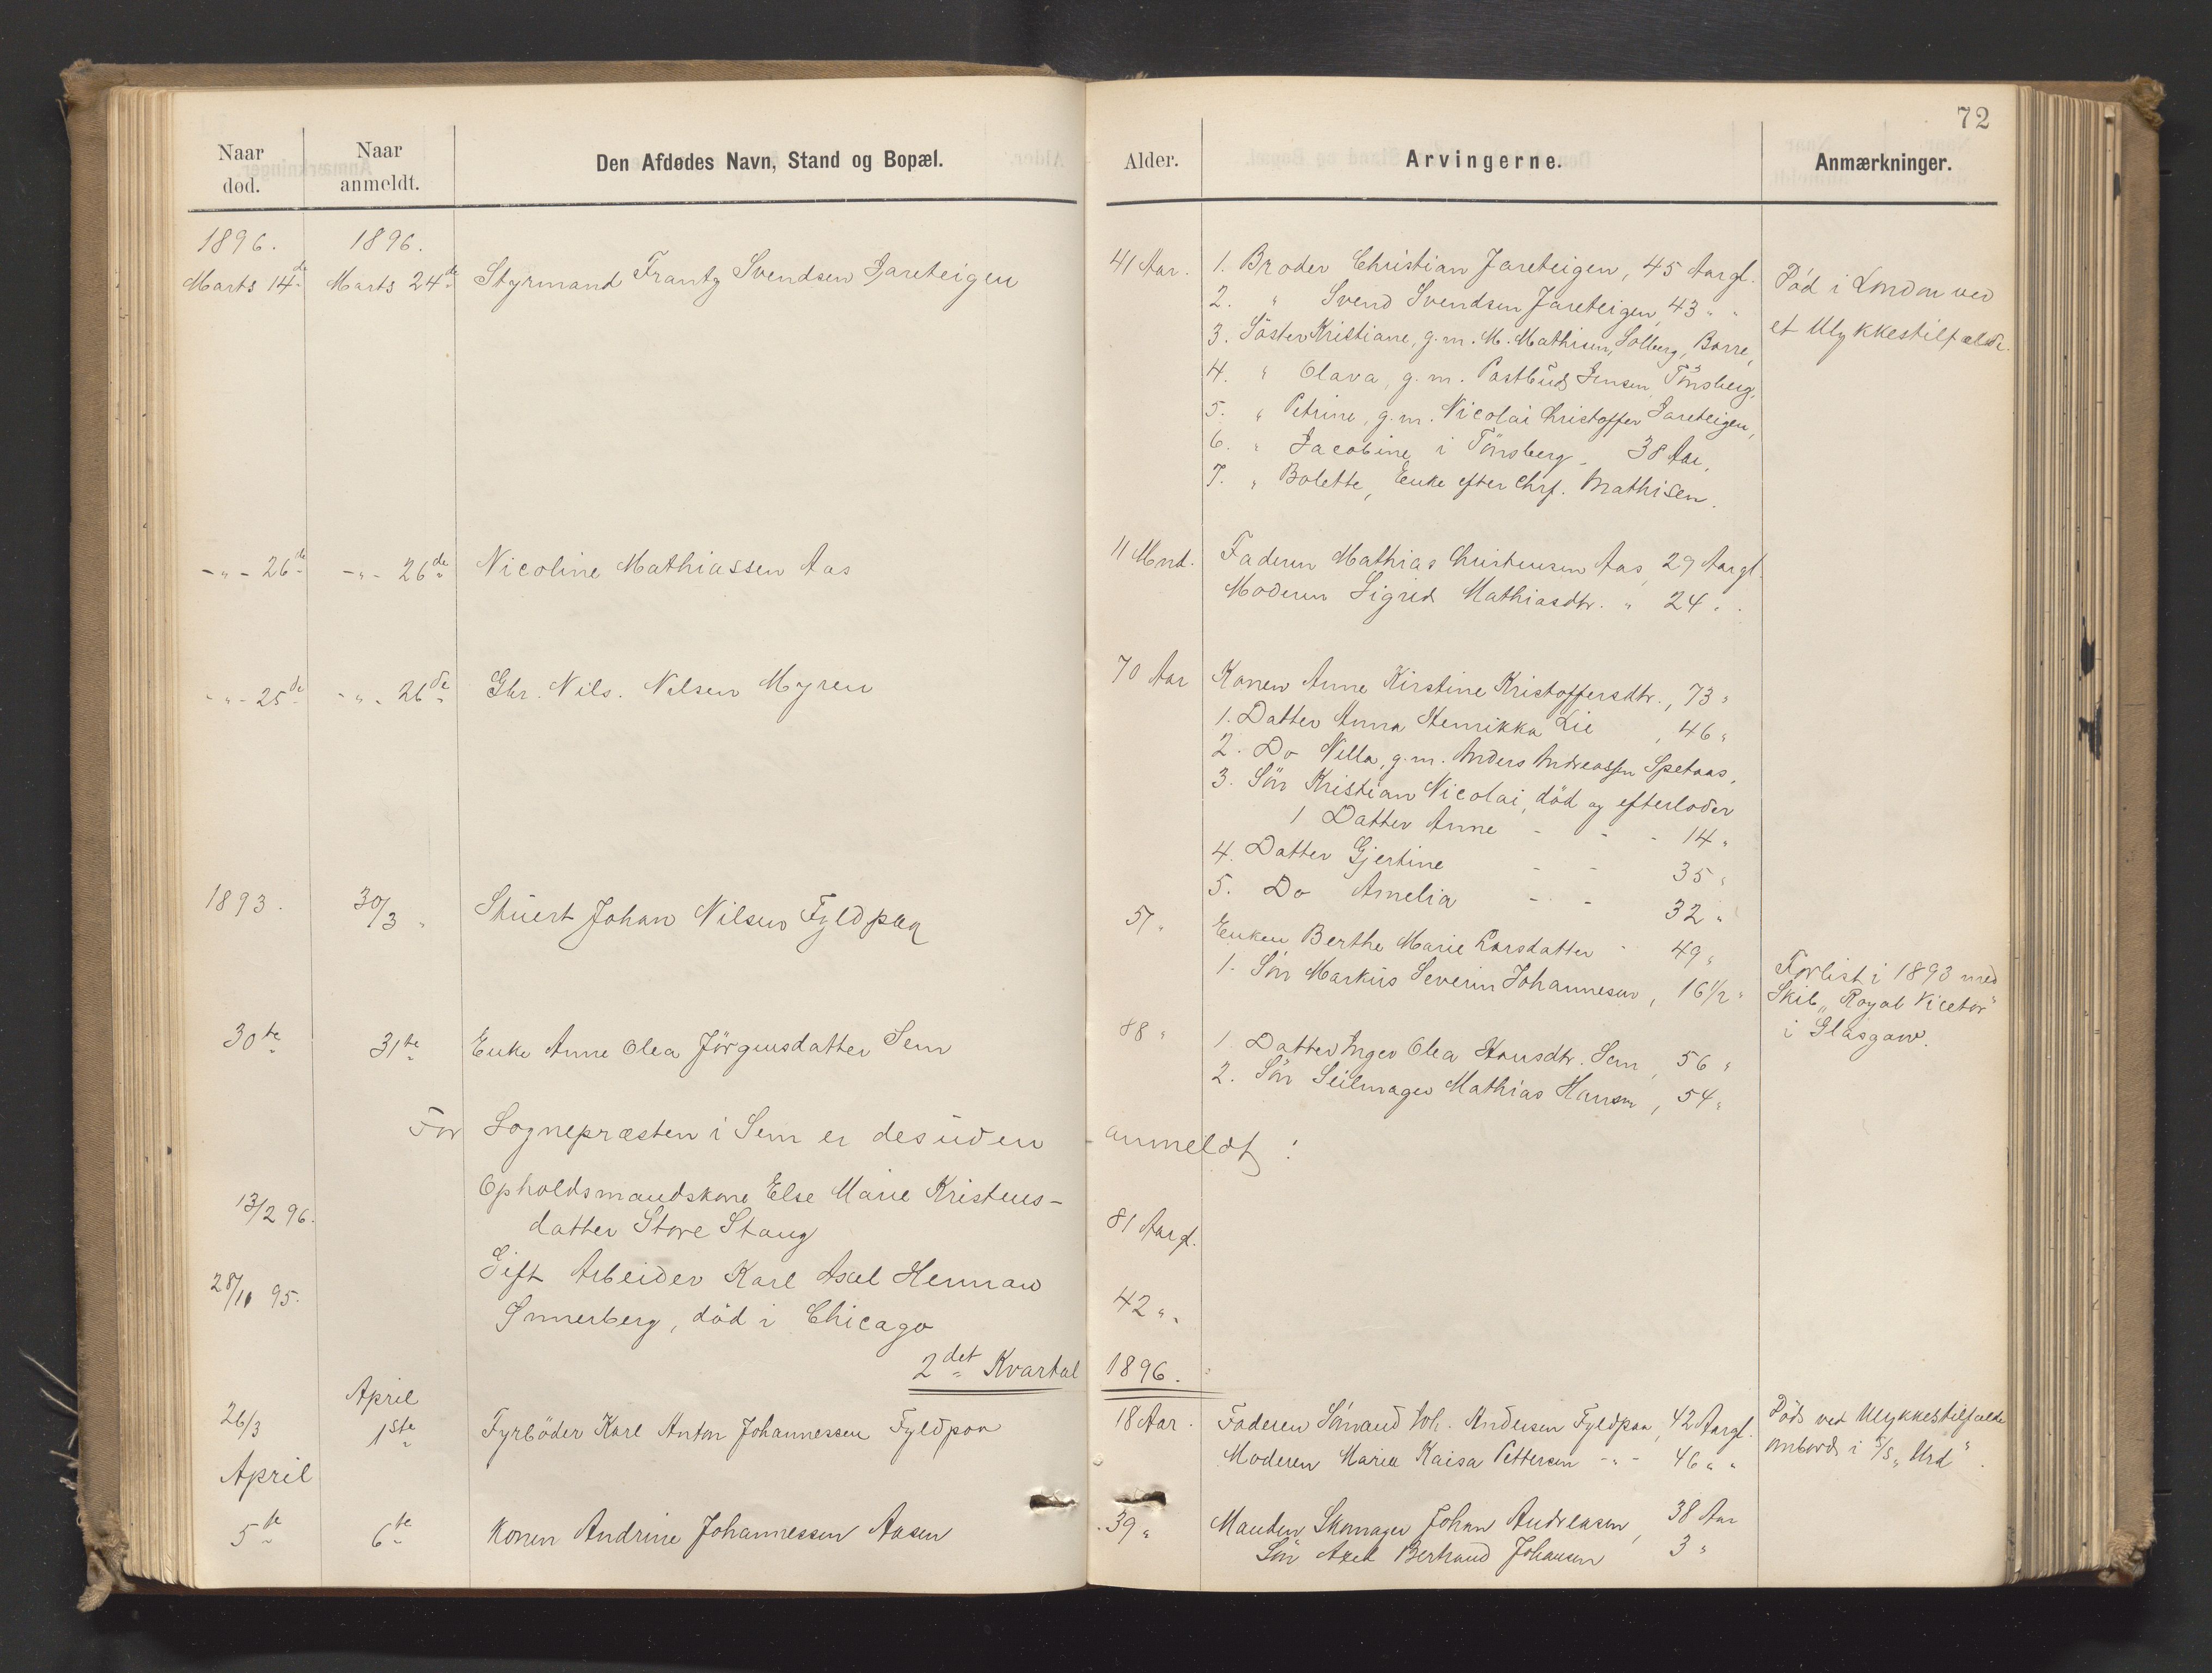 72
Naar død.
Naar anmeldt.
Den Afdødes Navn, Stand og Bopæl.
Alder.
Arvingerne.
Anmærkninger.
1896. 1896.
Marts 14de Marts 24de Styrmand Frantz Svendsen Jareteigen
41 Aar.
1. Broder Christian Jareteigen, 45 Aargl.
2. " Svend Svendsen Jareteigen, 43 " "
3. Söster Kristiane, g. m. M. Mathisen, Solberg, Borre,
4. " Olava, g. m. Postbud Jensen, Tönsberg,
5. " Petrine, g. m. Nicolai Christoffer Jareteigen,
6. " Jacobine i Tönsberg - 38 Aar,
7. " Bolette, Enke efter Chrf. Mathisen.
Död i London ved
et Ulykkestilfælde.
-"- 26de -"- 26de Nicoline Mathiassen Aas
11 Mnd.
Faderen Mathias Christensen Aas, 29 Aargl.
Moderen Sigrid Mathiasdtr. " 24 "
-"- 25de -"- 26de Gbr. Nils Nilsen Myren
70 Aar
Konen Anne Kirstine Kristoffersdtr., 73 "
1. Datter Anna Henrikka Lie, 46 "
2. Do Nilla, g. m. Anders Andreassen Spetaas,
3. Sön Kristian Nicolai, död og efterlader
1 Datter Anne - - - 14 "
4. Datter Gjertine - - 35 "
5. Do Amelia - - 32 "
1893. 30/3 " Stuert Johan Nilsen Fyldpaa
51 "
Enken Berthe Marie Larsdatter - 49 "
1. Sön Markus Severin Johannesen, 16 1/2 "
Forlist i 1893 med
Skib "Royal Victor"
i Glasgow.
30te 31te Enke Anne Olea Jörgensdatter Sem
88 "
1. Datter Inger Olea Hansdtr. Sem, 56 "
2. Sön Seilmager Mathias Hansen, 54 "
For Sognepræsten i Sem er desuden anmeldt:
13/2 96. Opholdsmandskone Else Marie Kristens-
datter Store Stang
81 Aargl.
28/10 95. Gift Arbeider Karl Axel Herman
Innerberg, död i Chicago
42 "
2det Kvartal 1896.
April
26/3 1ste Fyrböder Karl Anton Johannessen Fyldpaa
18 Aar.
Faderen Sömand Joh. Andersen Fyldpaa, 42 Aargl.
Moderen Maria Kaisa Pettersen -"- 46 " "
Död ved Ulykkestilfælde
ombord i S/S "Urd".
April
5te 6te Konen Andrine Johannessen Aasen
39 "
Manden Skomager Johan Andreasen, 38 Aar
Sön Axel Bertrand Johansen 3 "